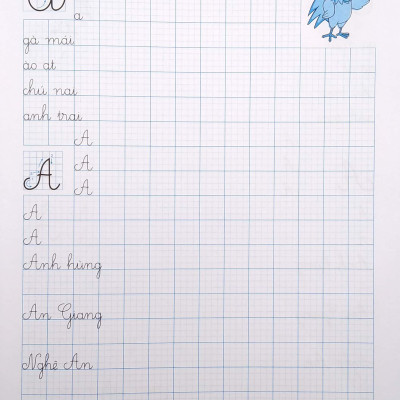 a
a
gà mái
ào ạt
chú nai
anh trai
A
A
A
A
A
A
Anh hùng
An Giang
Nghệ An